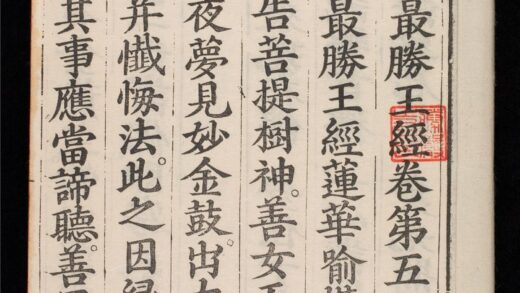 最勝王經卷第五
最勝王經蓮華喻讚
告菩提樹神。善女天
夜夢見妙金鼓。出大
并懺悔法。此之因緣
其事應當諦聽。善思